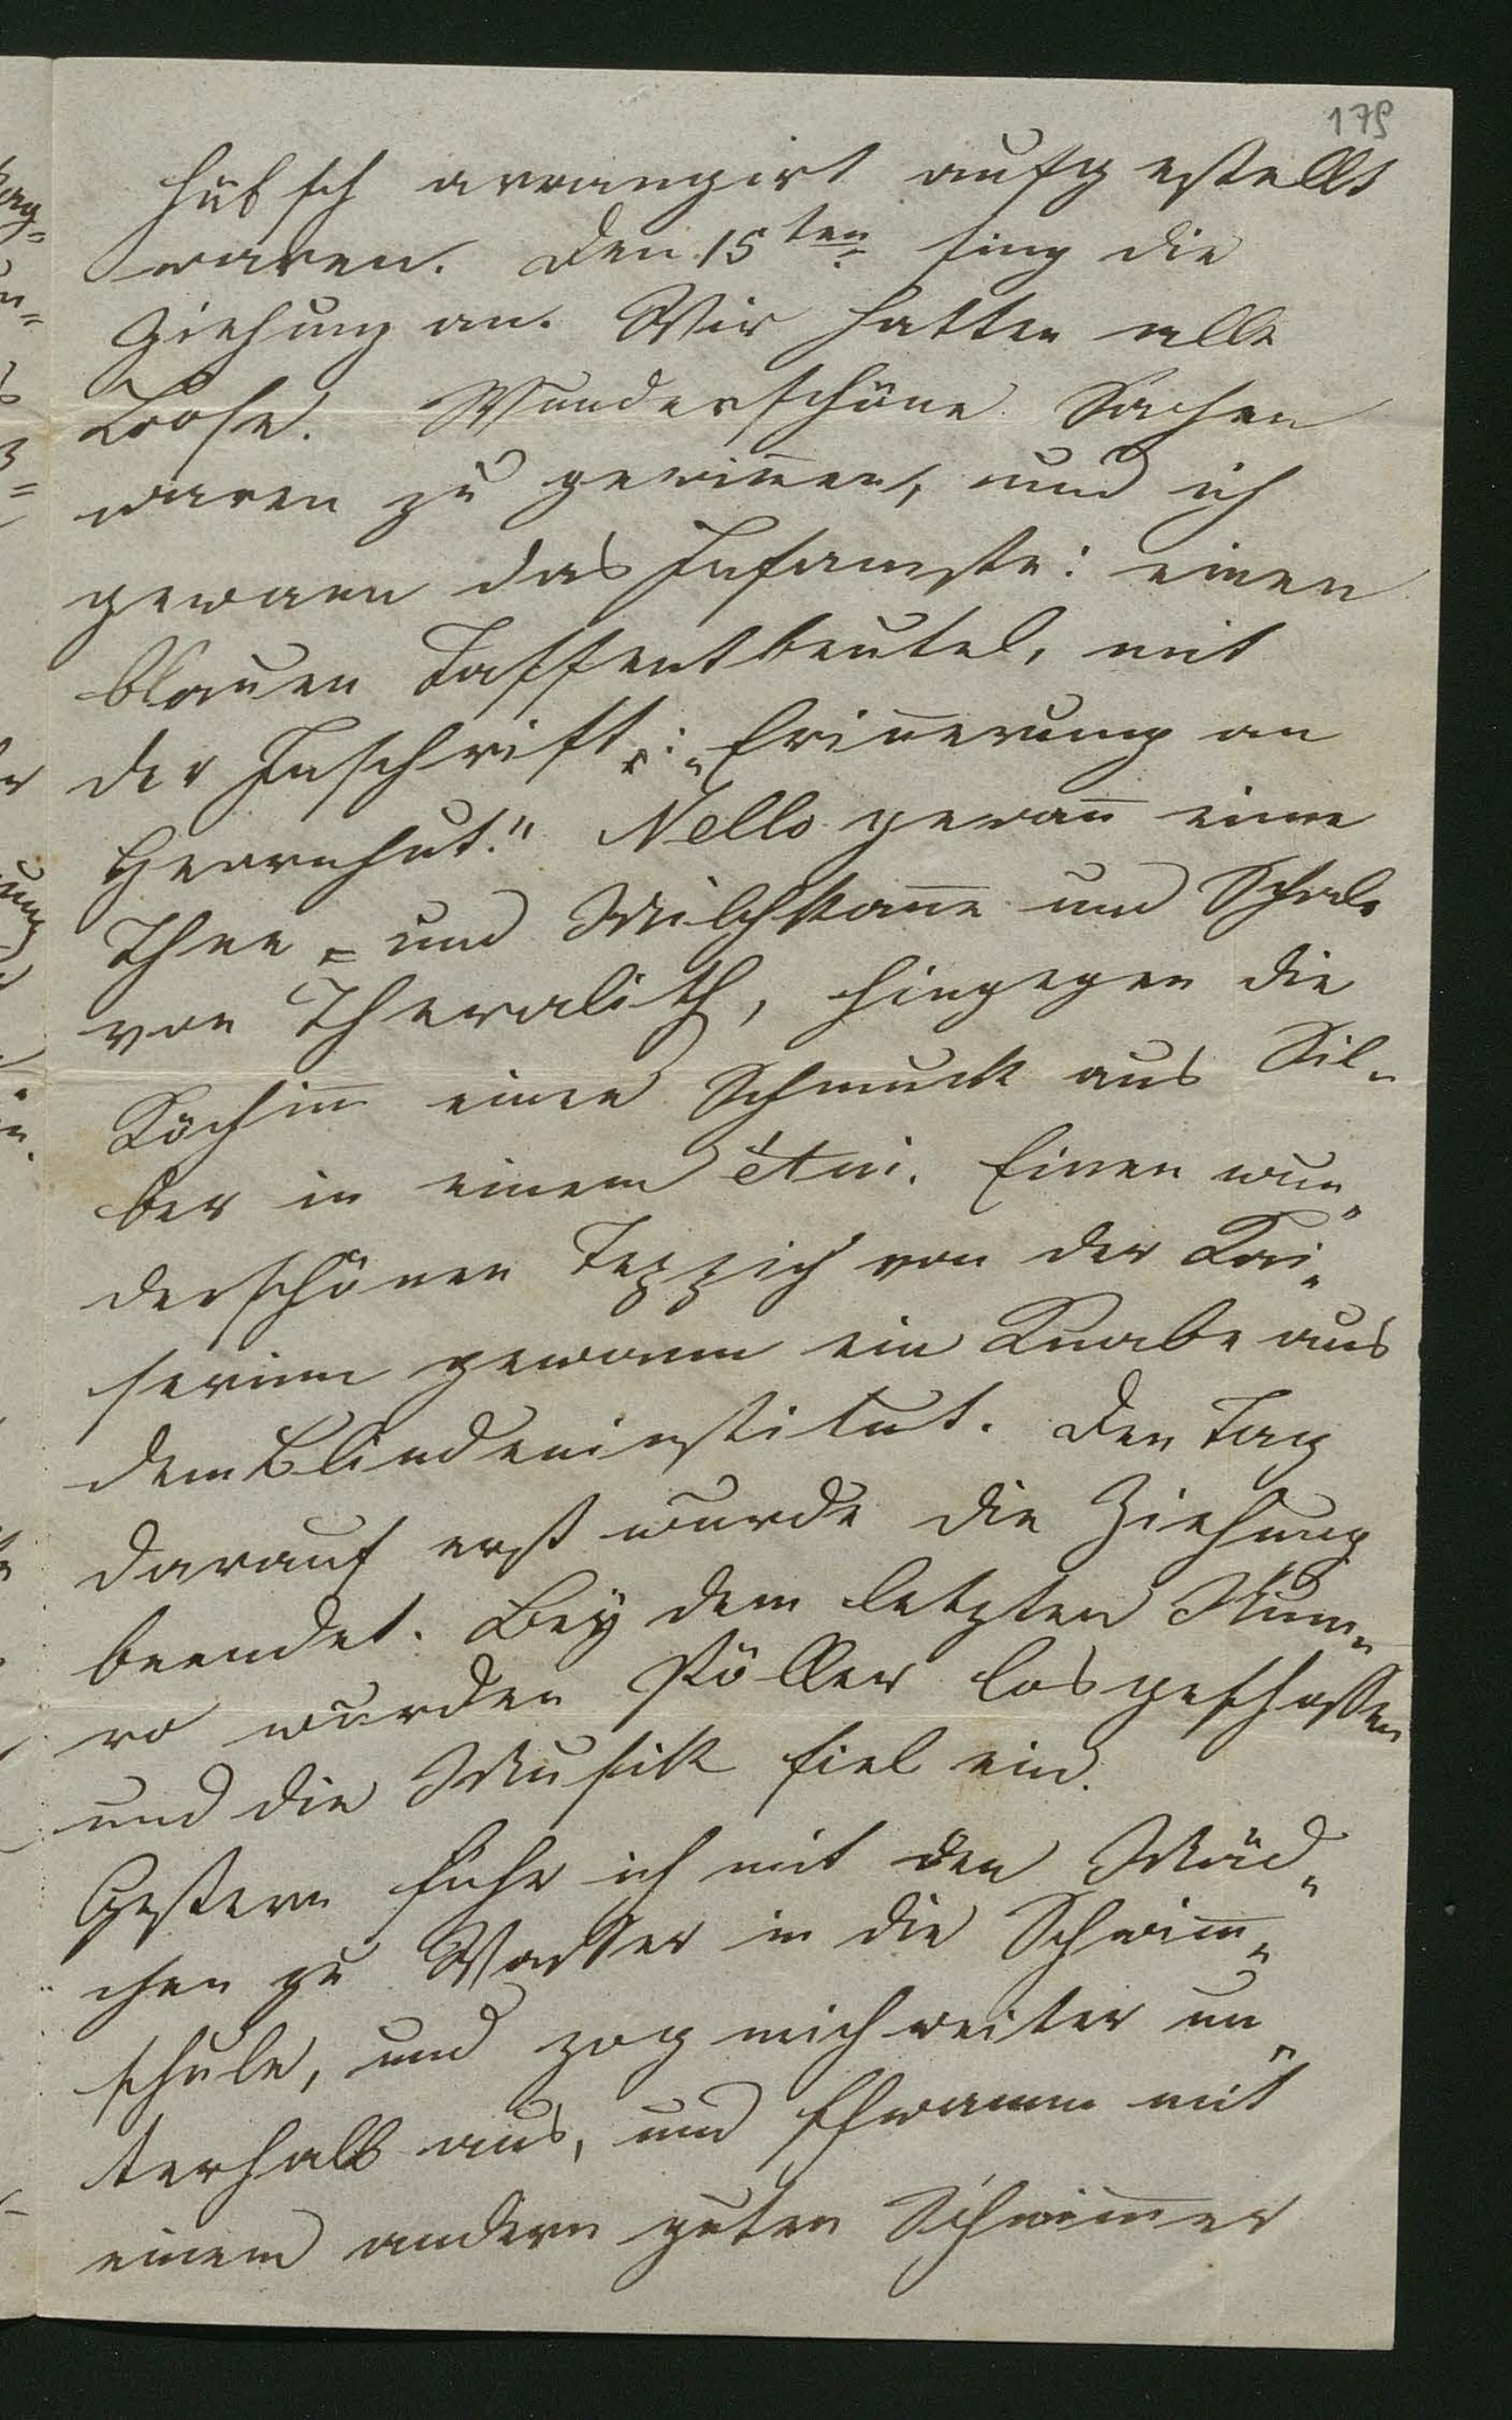 179
hübsch arrangirt aufgestellt
waren. Den 15ten fing die
Ziehung an. Wir hatten alle
Loose. Wunderschöne Sachen
waren zu gewin̄en, und ich
gewann das Infamste: einen
blauen Taffentbeutel, mit
der Inschrift: „Erin̄erung an
Herrnhut." Nello gewan̄ eine
Thee- und Milchkan̄e und Schale
von Theralith, hingegen die
Köchin̄ einen Schmuck aus Sil-
ber in einem étui. Einen wun-
derschönen Teppich von der Kai-
serinn gewann ein Knabe aus
dem Blindeninstitut. Den Tag
darauf erst wurde die Ziehung
beendet. Bey dem letzten Num-
ro wurden Pöller losgeschossen
und die Musik fiel ein.
Gestern fuhr ich mit den Mäd-
chen zu Wasser in die Schwim̄-
schule, und zog mich weiter un-
terhalb aus, und schwamm mit
einem andern guten Schwim̄er